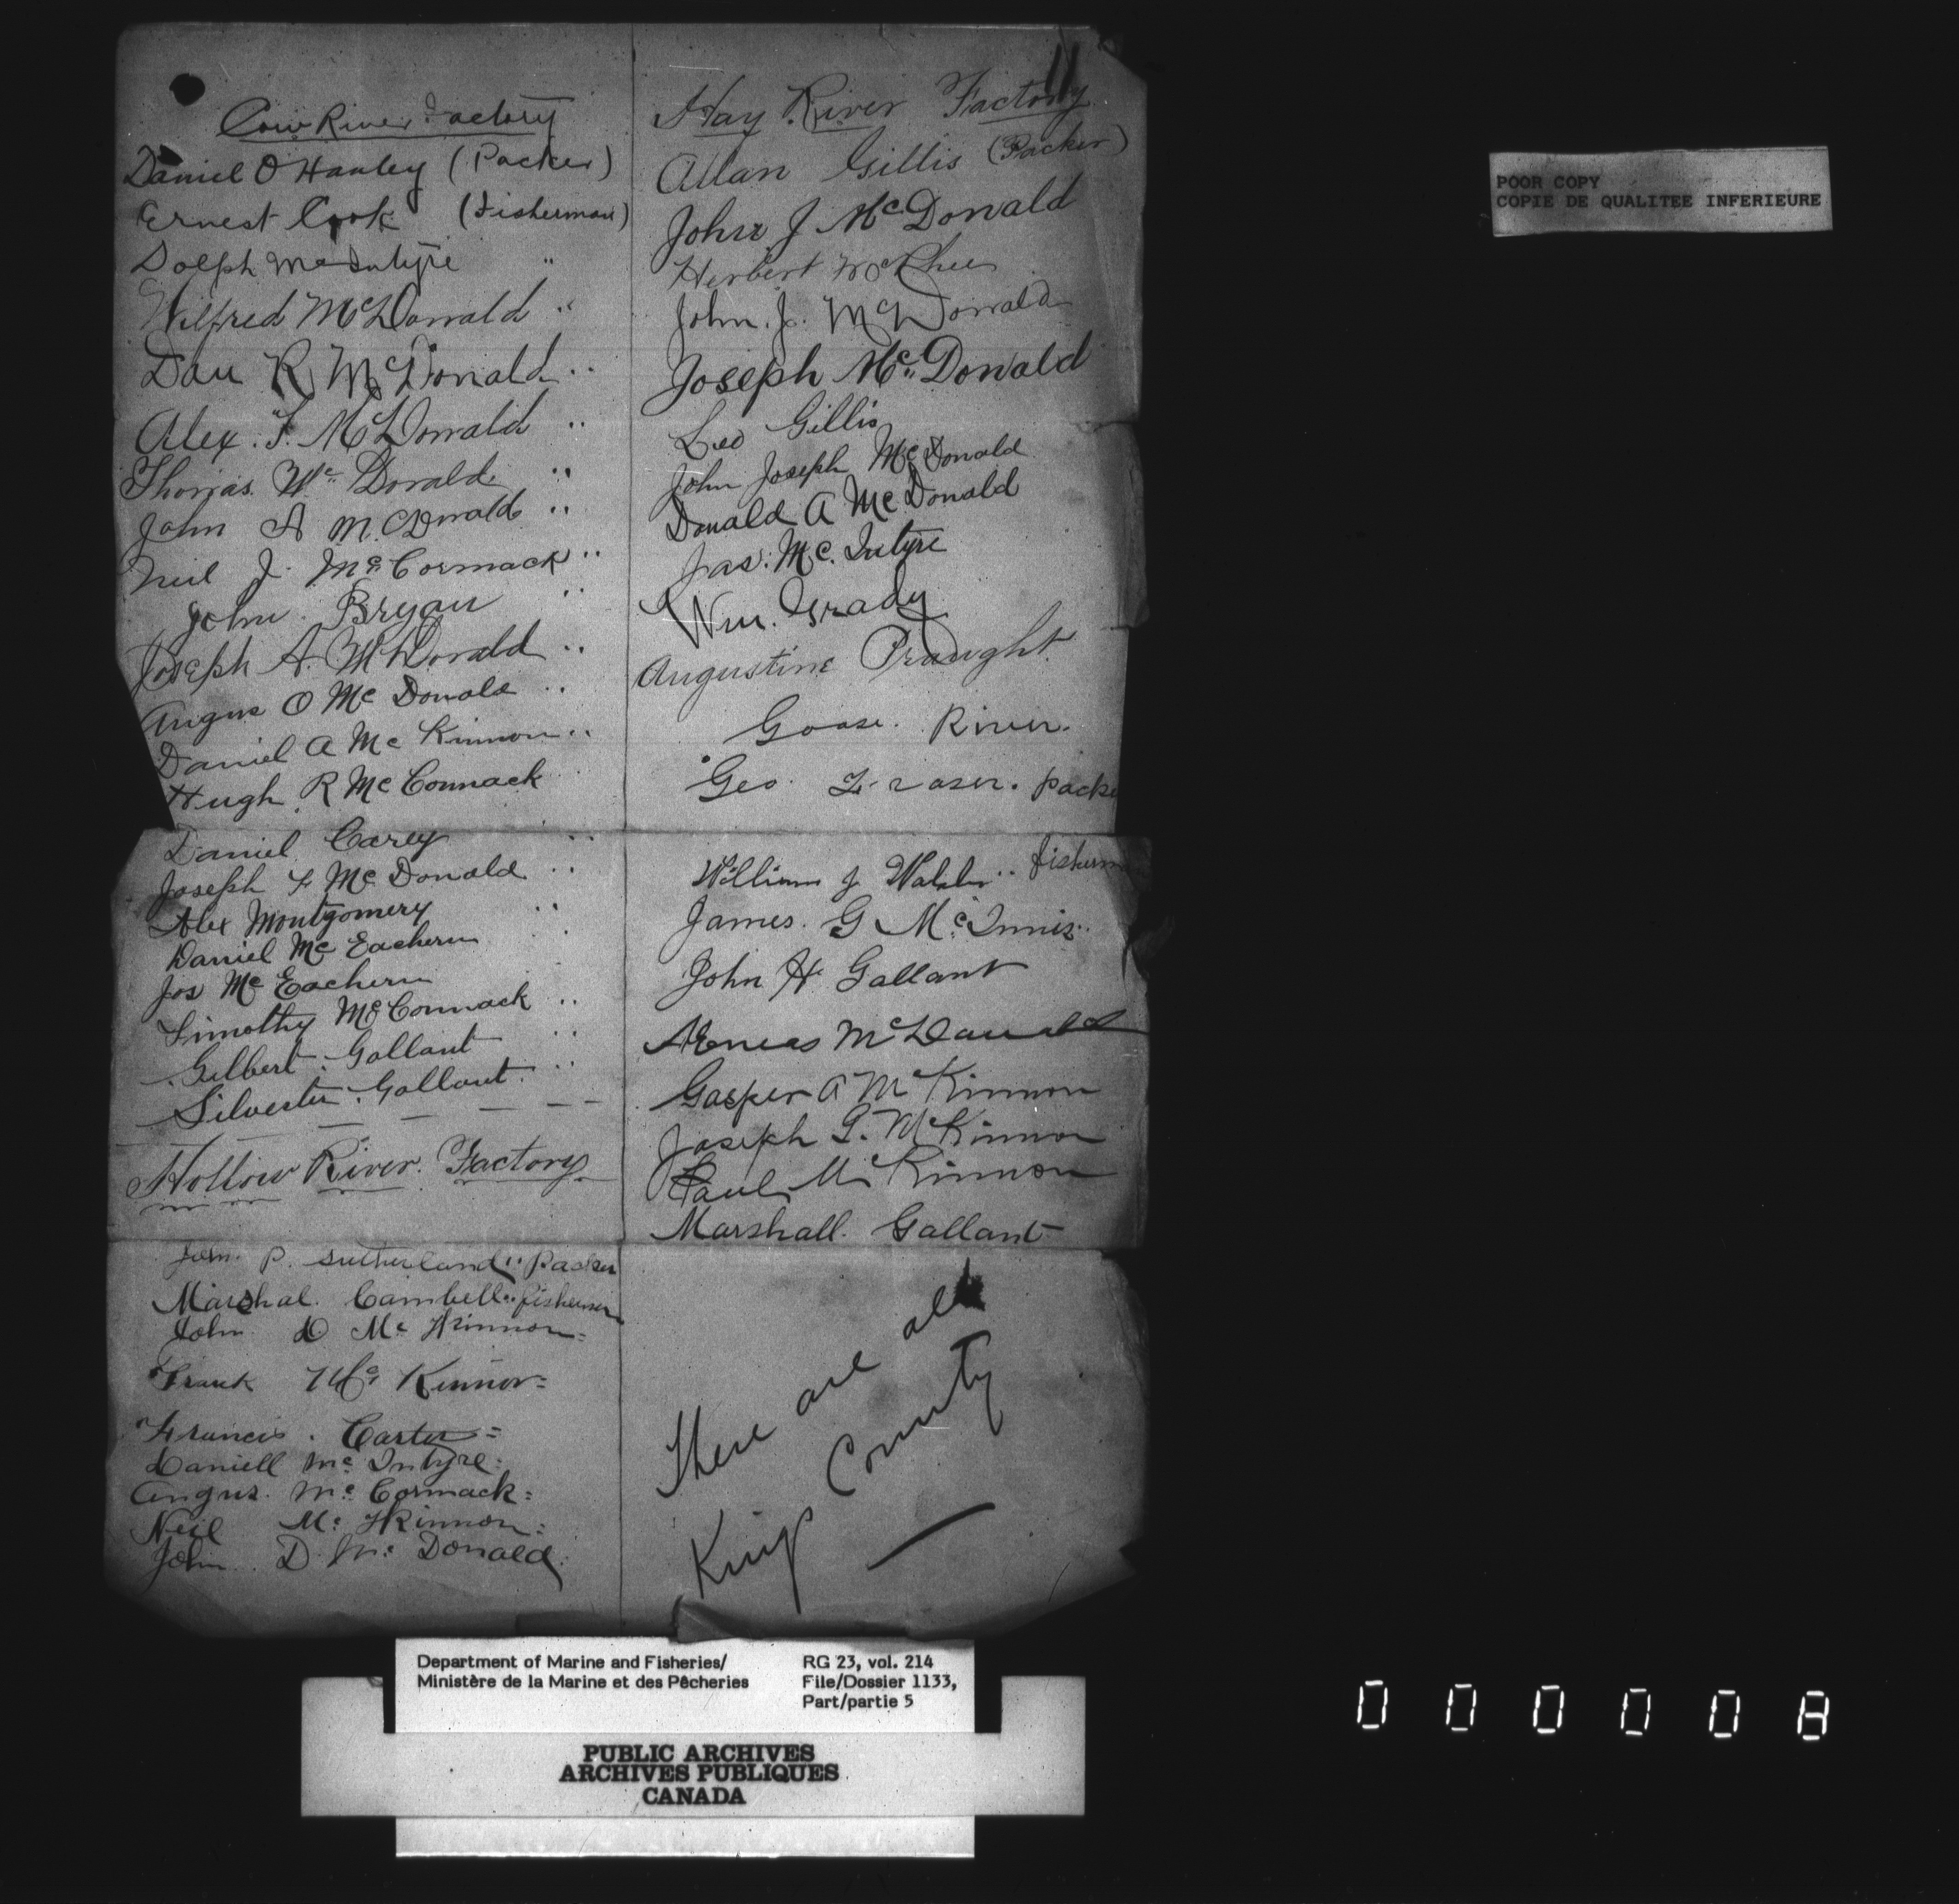 11
Cow River Factory
Daniel O Hanley (Packer)
Ernest Cook (Fisherman)
Dolph McIntyre "
Wilfred McDonald "
Dan R McDonald "
Alex. F. McDonald "
Thomas Mc Donald "
John A McDonald "
Neil J. McCormack "
John Bryan "
Joseph A. McDonald "
Angus O Mc Donald "
Daniel A Mc Kinnon "
Hugh R Mc Cormack "
Daniel Carey "
Joseph F Mc Donald "
Alex Montgomery "
Daniel Mc Eachern "
Jos Mc Eachern
Timothy McCormack "
Gilbert Gallant "
Silvester Gallant "
Hollow River Factory
John P. Sutherland " Packer
Marshal Cambell " fisherman
John D Mc Kinnon =
Frank Mc Kinnon =
Francis Carter =
Daniell Mc Intyre =
Angus Mc Cormack =
Neil Mc Kinnon =
John D. Mc Donald =
Hay River Factory
Allan Gillis (Packer)
John J McDonald
Herbert McPhee
John J. McDonald
Joseph McDonald
Leo Gillis
John Joseph McDonald
Donald A McDonald
Jas. McIntyre
Wm. Grady
Augustine Praught
Goose River.
Geo. Fraser. packe
William J Walsh " fisherm
James G McInnis "
John H Gallant
Aeneas McDonald
Gasper A McKinnon
Joseph G. McKinnon
Paul McKinnon
Marshall Gallant
These are all
Kings County
POOR COPY
COPIE DE QUALITEE INFERIEURE
Department of Marine and Fisheries/
Ministère de la Marine et des Pêcheries
RG 23, vol. 214
File/Dossier 1133,
Part/partie 5
PUBLIC ARCHIVES
ARCHIVES PUBLIQUES
CANADA
000008